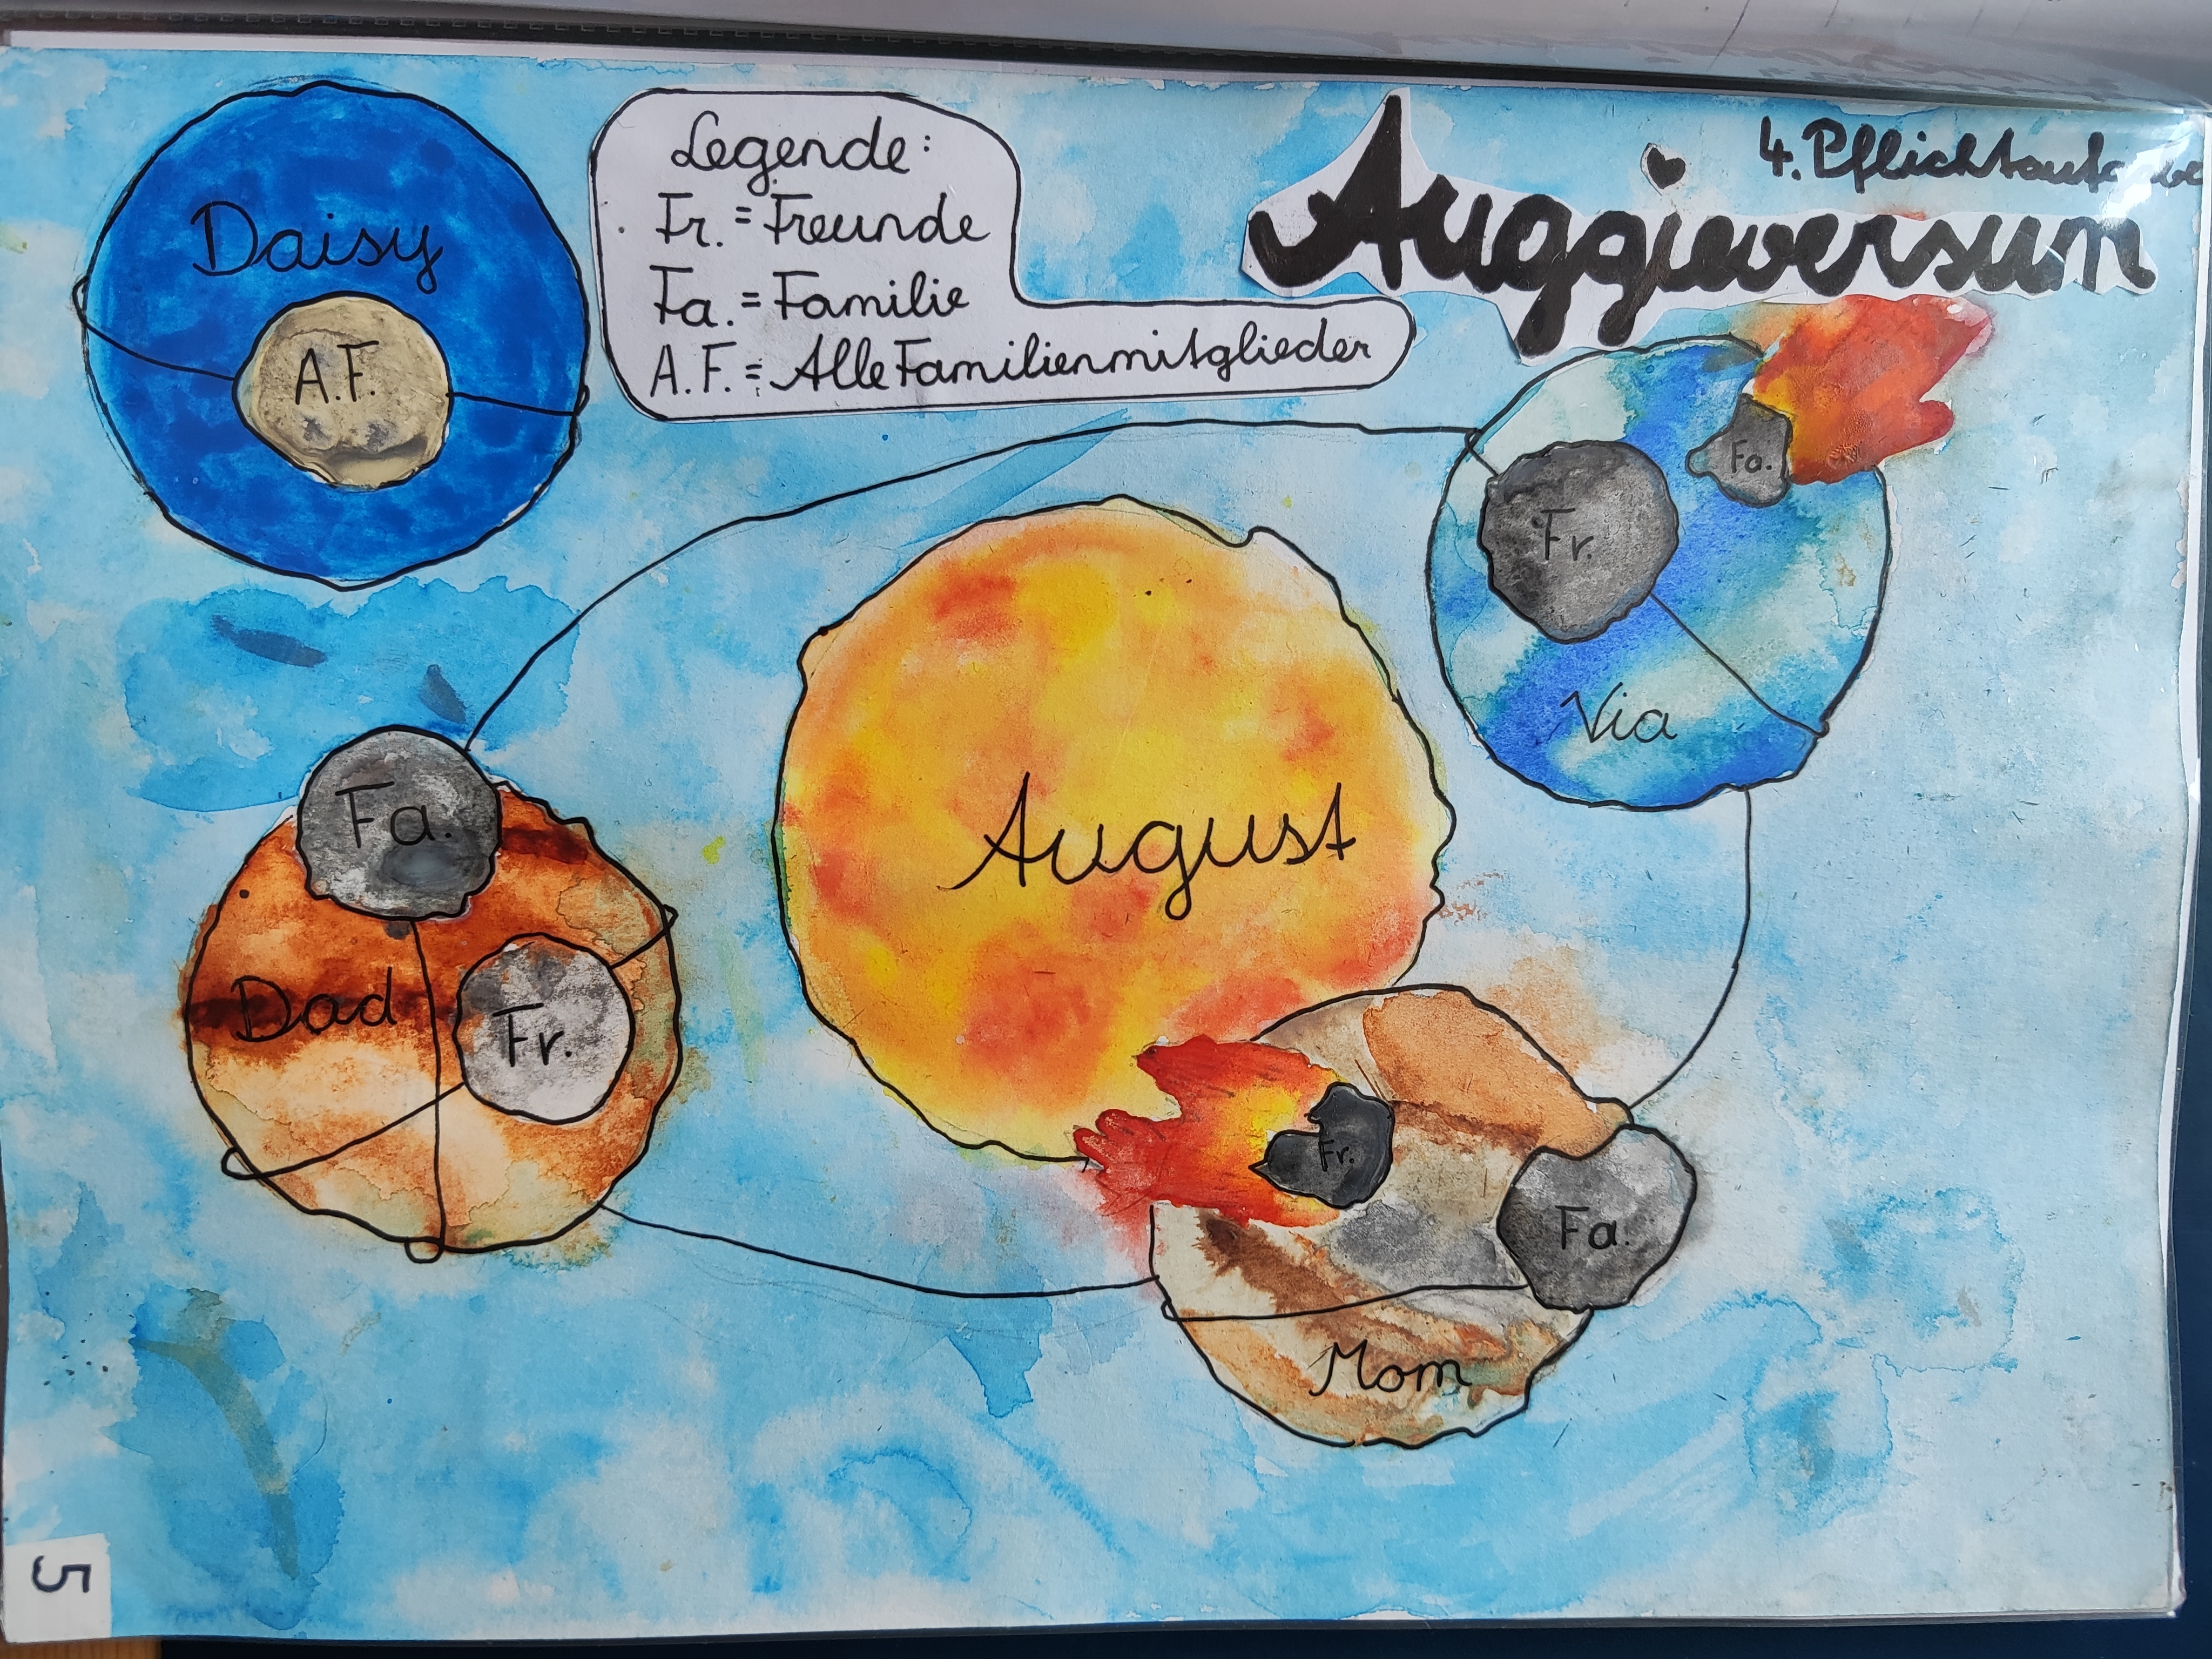 4. Pflichtaufgabe
Auggieversum
Legende:
Fr. = Freunde
Fa. = Familie
A.F. = Alle Familienmitglieder
Daisy
A.F.
Fa.
Fr.
Via
August
Fa.
Dad
Fr.
Fr.
Fa.
Mom
5